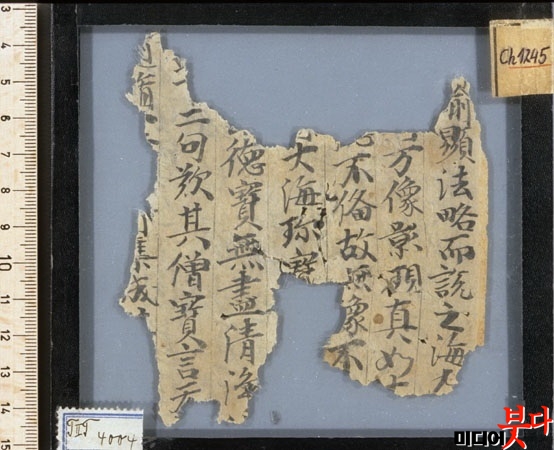 顯法略而說之海
方像景真如
不俻故無象不
大海珎寶
德寶無盡清淨
二句歎其僧寶言
集成
Ch 1245
T II T
4004
3
4
5
6
7
8
9
10
11
12
13
14
15
미디어붓다